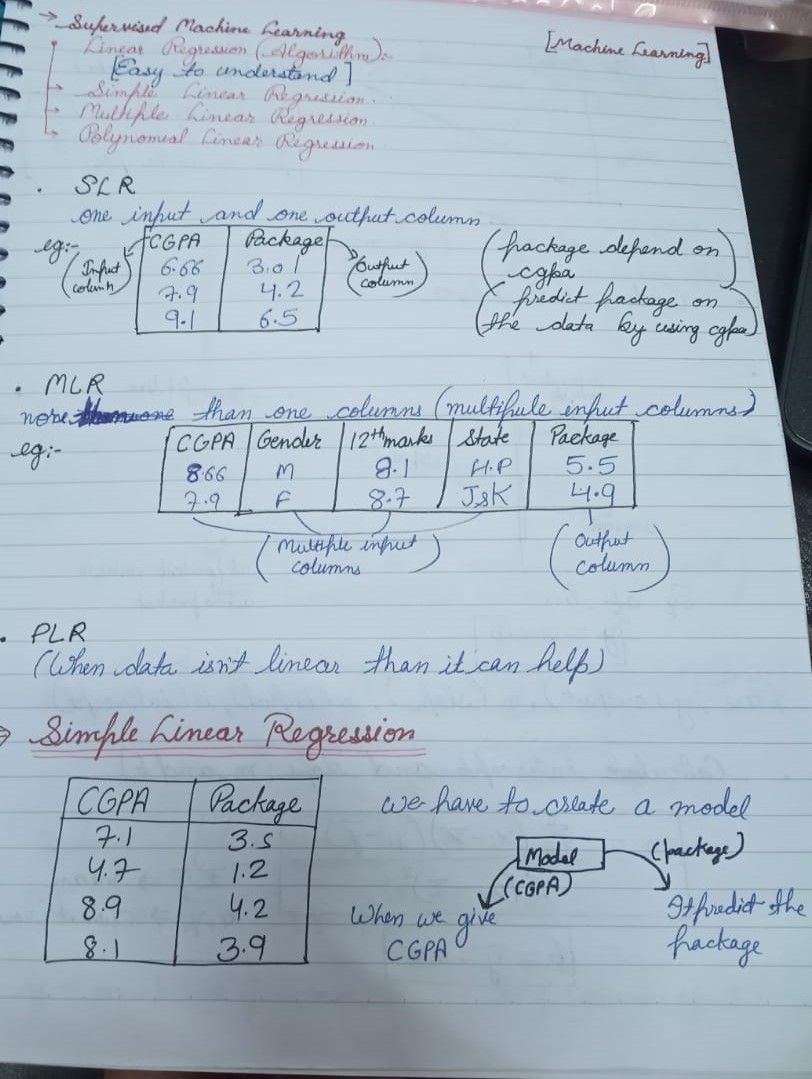 → Supervised Machine Learning
[Machine Learning]
Linear Regression (Algorithm):-
[Easy to understand]
→ Simple Linear Regression.
→ Multiple Linear Regression
→ Polynomial Linear Regression
• SLR
one input and one output column
eg:-
CGPA Package
6.66 3.01
7.9 4.2
9.1 6.5
(Input column)
(Output column)
(package depend on cgpa)
(predict package on the data by using cgpa)
• MLR
more than one columns (multipule input columns)
eg:-
CGPA Gender 12th marks State Package
8.66 M 8.1 H.P 5.5
7.9 F 8.7 J&K 4.9
(Multiple input columns)
(Output column)
• PLR
(When data isn't linear than it can help)
→ Simple Linear Regression
CGPA Package
7.1 3.5
4.7 1.2
8.9 4.2
8.1 3.9
we have to create a model
Model
(CGPA)
(package)
When we give CGPA
It predict the package